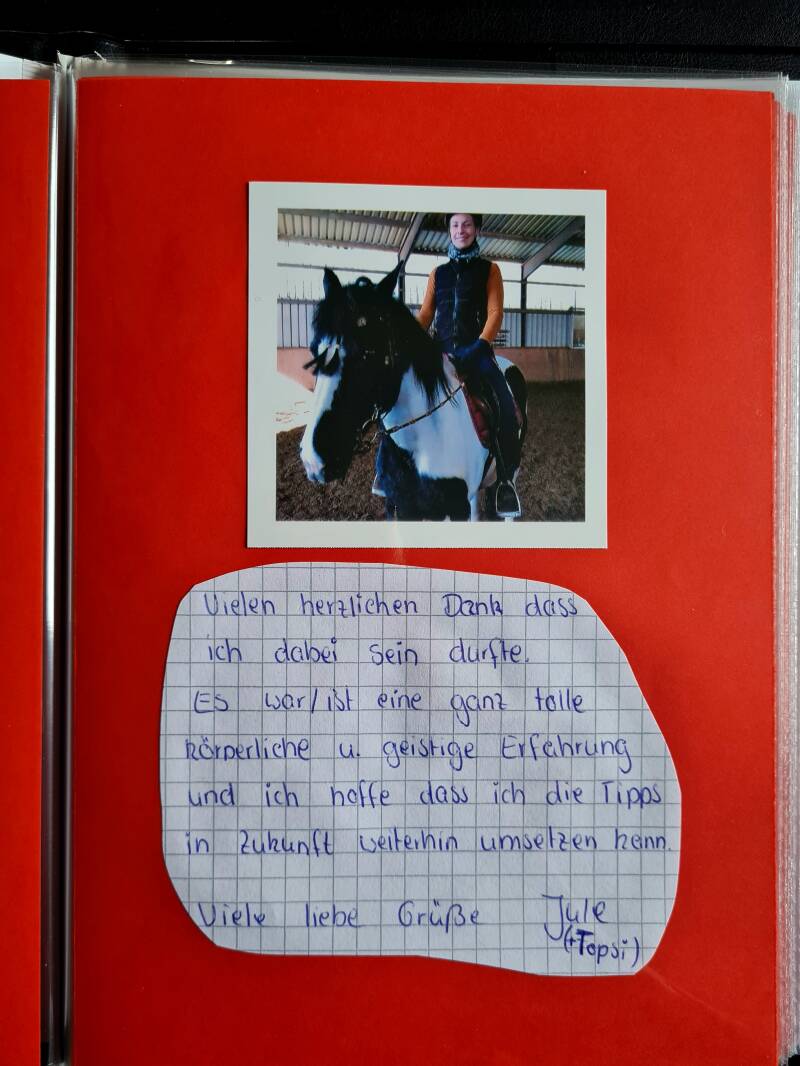 Vielen herzlichen Dank dass
ich dabei sein durfte.
Es war/ist eine ganz tolle
körperliche u. geistige Erfahrung
und ich hoffe dass ich die Tipps
in Zukunft weiterhin umsetzen kann.
Viele liebe Grüße Jule
(+Topsi)